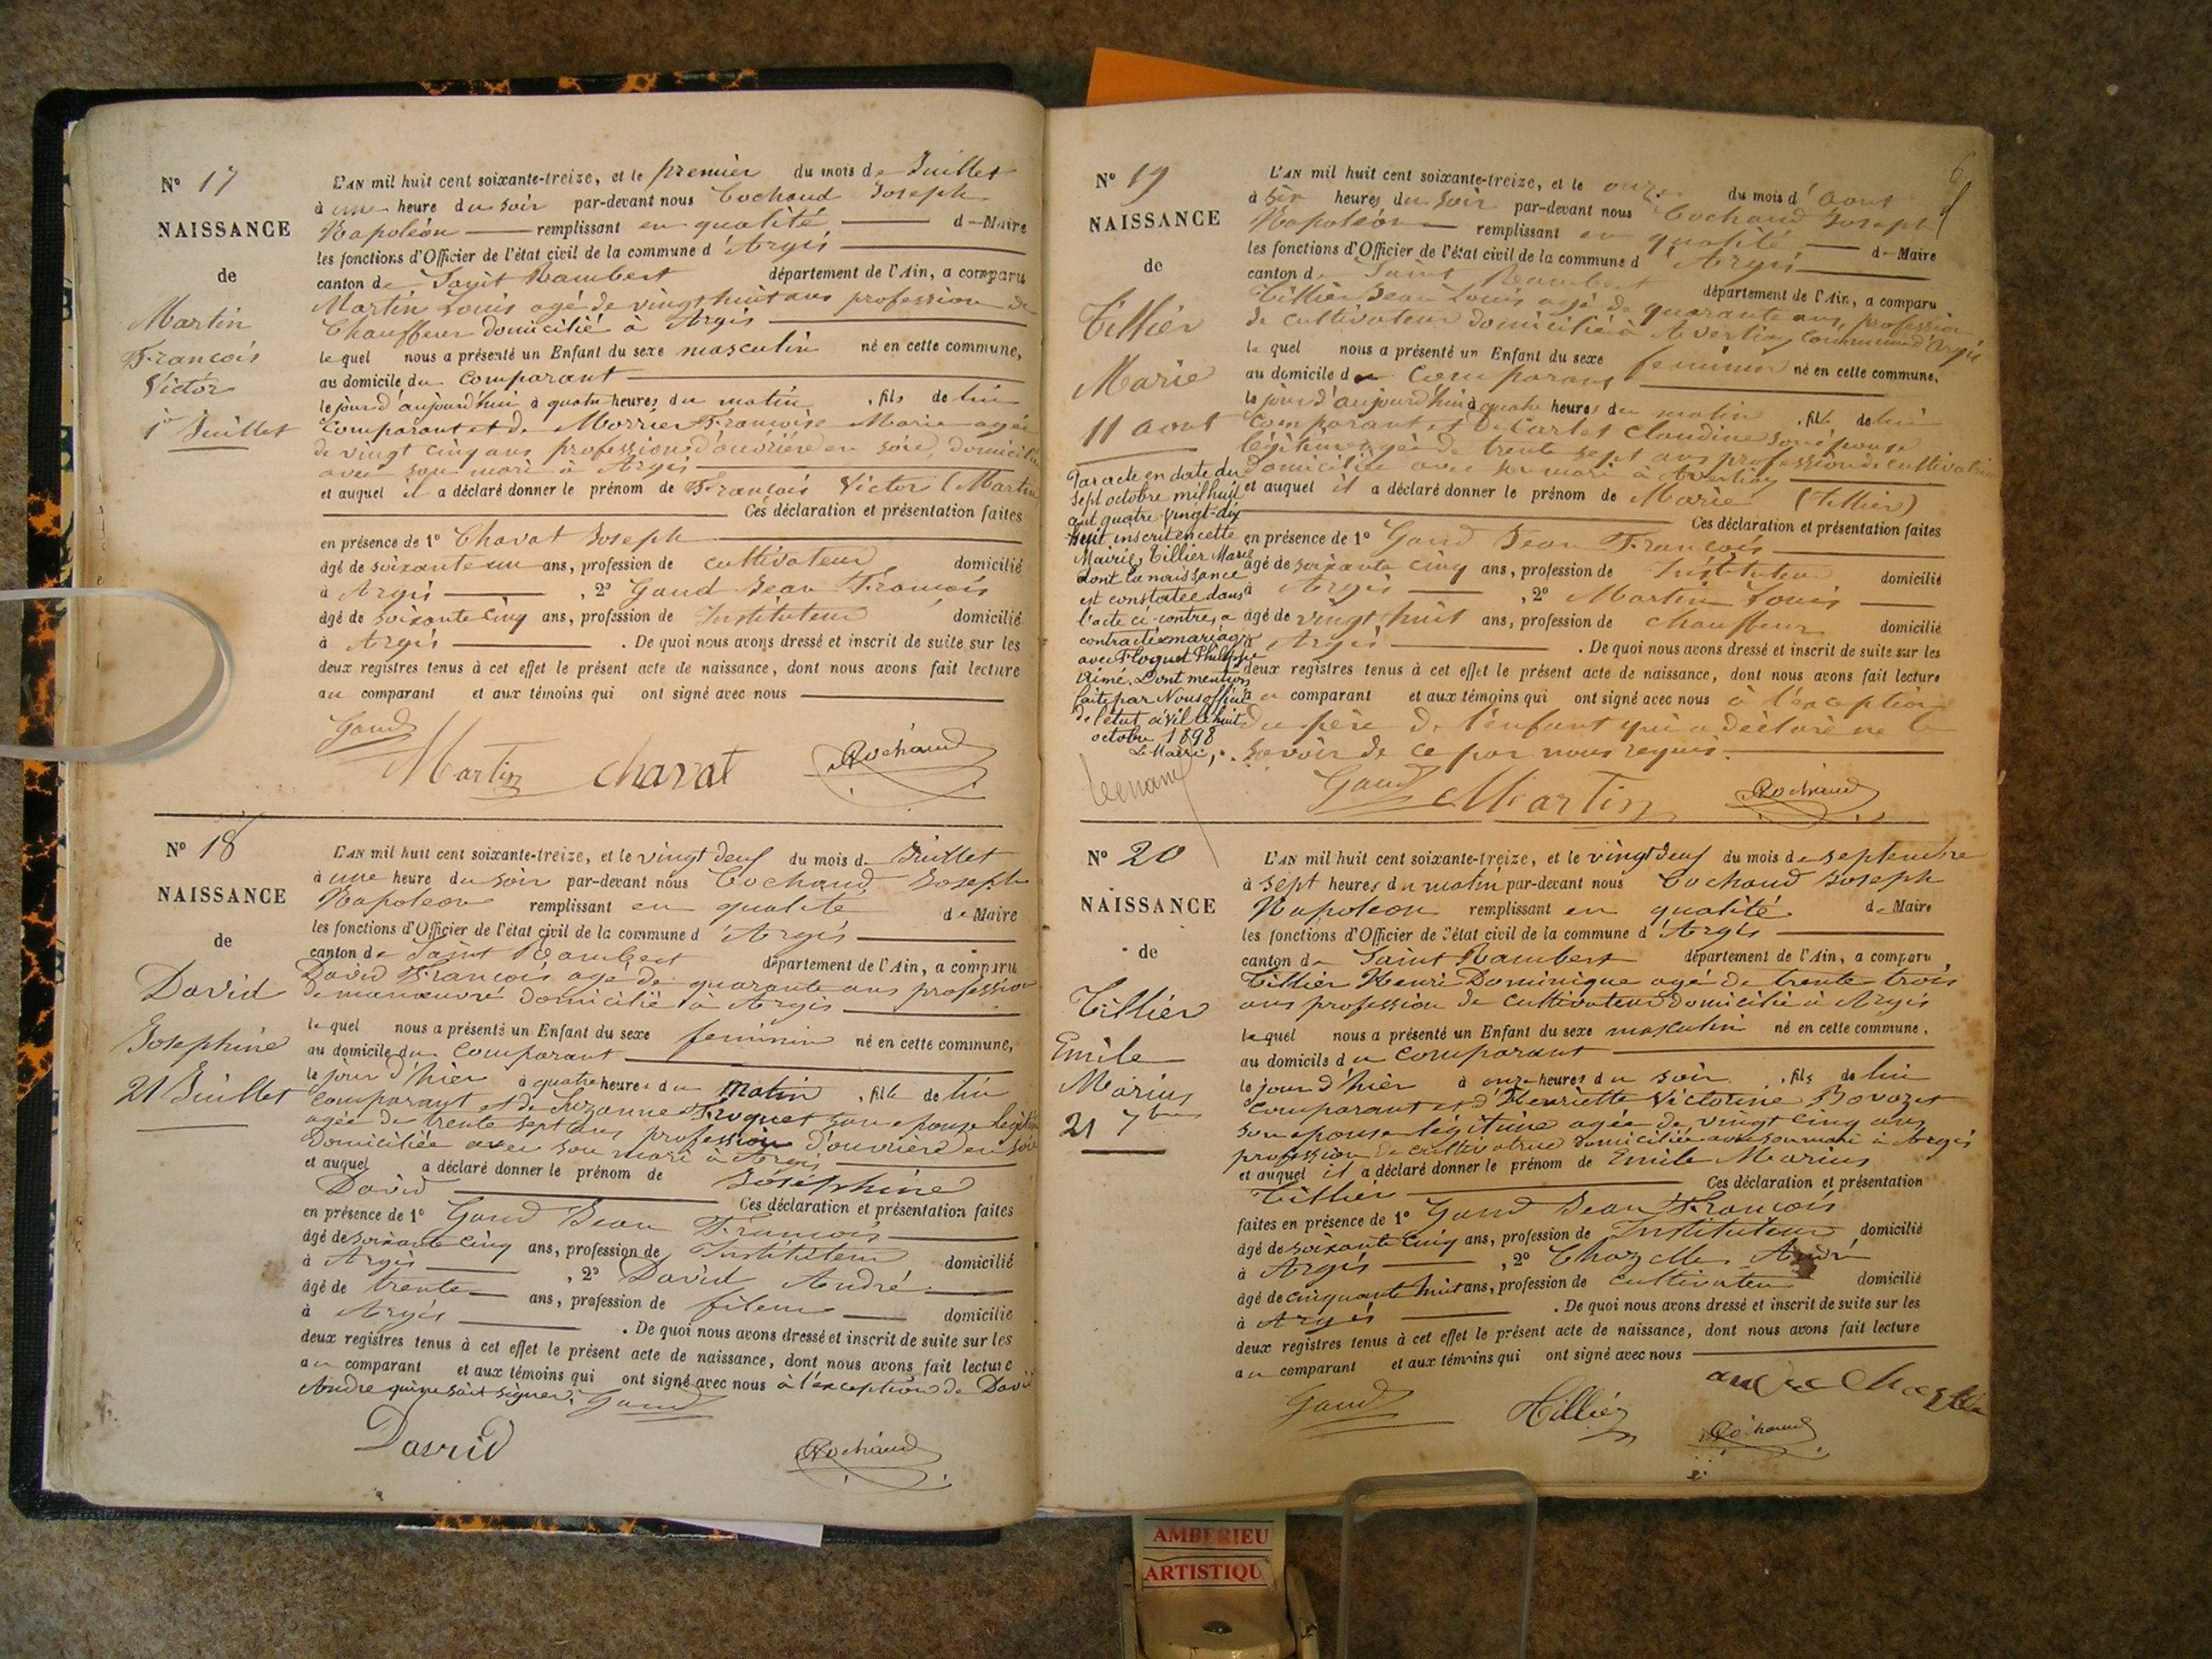 N° 17
NAISSANCE
de
Martin
François
Victor
1er Juillet
L'AN mil huit cent soixante-treize, et le premier du mois de Juillet
à une heure du soir par-devant nous Cochaud Joseph
Napoléon remplissant en qualité de Maire
les fonctions d'Officier de l'état civil de la commune d'Argis
canton de Saint Rambert département de l'Ain, a comparu
Martin Louis agé de vingt huit ans profession de
Chauffeur domicilié à Argis
lequel nous a présenté un Enfant du sexe masculin né en cette commune,
au domicile du comparant
le jour d'aujourd'hui à quatre heures du matin, fils de lui
comparant et de Morrier Françoise Marie agée
de vingt cinq ans profession d'ouvrière en soie, domiciliée
avec son mari à Argis
et auquel il a déclaré donner le prénom de François Victor (Martin
Ces déclaration et présentation faites
en présence de 1° Chavat Joseph
âgé de soixante un ans, profession de cultivateur domicilié
à Argis, 2° Gaud Jean François
âgé de soixante cinq ans, profession de Instituteur domicilié
à Argis. De quoi nous avons dressé et inscrit de suite sur les
deux registres tenus à cet effet le présent acte de naissance, dont nous avons fait lecture
au comparant et aux témoins qui ont signé avec nous
Gaud
Martin Chavat Cochaud
N° 18
NAISSANCE
de
David
Josephine
21 Juillet
L'AN mil huit cent soixante-treize, et le vingt deux du mois de Juillet
à une heure du soir par-devant nous Cochaud Joseph
Napoléon remplissant en qualité de Maire
les fonctions d'Officier de l'état civil de la commune d'Argis
canton de Saint Rambert département de l'Ain, a comparu
David François agé de quarante ans profession
de manœuvre domicilié à Argis
lequel nous a présenté un Enfant du sexe feminin né en cette commune,
au domicile du comparant
le jour d'hier à quatre heures du matin, fille de lui
comparant et de Suzanne Froquet son epouse legitime
agée de trente sept ans profession d'ouvrière en soie
domiciliée avec son mari à Argis
et auquel a déclaré donner le prénom de Joséphine
David Ces déclaration et présentation faites
en présence de 1° Gaud Jean François
âgé de soixante cinq ans, profession de Instituteur domicilié
à Argis, 2° David André
âgé de trente ans, profession de fileur domicilié
à Argis. De quoi nous avons dressé et inscrit de suite sur les
deux registres tenus à cet effet le présent acte de naissance, dont nous avons fait lecture
au comparant et aux témoins qui ont signé avec nous à l'exception de David
André qui ne sait signer. Gaud
David Cochaud
6
N° 19
NAISSANCE
de
Tillier
Marie
11 aout
Par acte en date du
sept octobre mil huit
cent quatre vingt-dix
huit inscrit en cette
Mairie, Tillier Marie
dont la naissance
est constatée dans
l'acte ci-contre, a
contracté mariage
avec Floquet Philippe
Aimé. Dont mention
faite par Nous officier
de l'état civil le huit
octobre 1898
Le Maire,
L'AN mil huit cent soixante-treize, et le onze du mois d'aout
à six heures du soir par-devant nous Cochaud Joseph
Napoléon remplissant en qualité de Maire
les fonctions d'Officier de l'état civil de la commune d'Argis
canton de Saint Rambert département de l'Ain, a comparu
Tillier Jean Louis agé de quarante ans, profession
de cultivateur domicilié à Averliaz commune d'Argis
lequel nous a présenté un Enfant du sexe feminin né en cette commune,
au domicile du comparant
le jour d'aujourd'hui à quatre heures du matin, fille de lui
comparant et de Carlet Claudine son épouse
légitime agée de trente sept ans profession de cultivatrice
domiciliée avec son mari à Averliaz
et auquel il a déclaré donner le prénom de Marie (Tillier)
Ces déclaration et présentation faites
en présence de 1° Gaud Jean François
âgé de soixante cinq ans, profession de Instituteur domicilié
à Argis, 2° Martin Louis
âgé de vingt huit ans, profession de chauffeur domicilié
à Argis. De quoi nous avons dressé et inscrit de suite sur les
deux registres tenus à cet effet le présent acte de naissance, dont nous avons fait lecture
au comparant et aux témoins qui ont signé avec nous à l'exception
du père de l'enfant qui a déclaré ne le
savoir de ce par nous requis.
Gaud Martin Cochaud
N° 20
NAISSANCE
de
Tillier
Emile
Marius
21 7bre
L'AN mil huit cent soixante-treize, et le vingt deux du mois de septembre
à sept heures du matin par-devant nous Cochaud Joseph
Napoleon remplissant en qualité de Maire
les fonctions d'Officier de l'état civil de la commune d'Argis
canton de Saint Rambert département de l'Ain, a comparu,
Tillier Henri Dominique agé de trente trois
ans profession de cultivateur domicilié à Argis
lequel nous a présenté un Enfant du sexe masculin né en cette commune,
au domicile du comparant
le jour d'hier à onze heures du soir, fils de lui
comparant et d'Henriette Victorine Bovozet
son epouse légitime agée de vingt cinq ans
profession de cultivatrice domiciliée avec son mari à Argis
et auquel il a déclaré donner le prénom de Emile Marius
Tillier Ces déclaration et présentation
faites en présence de 1° Gaud Jean François
âgé de soixante cinq ans, profession de Instituteur domicilié
à Argis, 2° Chazelle André
âgé de cinquante huit ans, profession de cultivateur domicilié
à Argis. De quoi nous avons dressé et inscrit de suite sur les
deux registres tenus à cet effet le présent acte de naissance, dont nous avons fait lecture
au comparant et aux témoins qui ont signé avec nous
Gaud Tillier andre Chazelle
Cochaud
AMBERIEU
ARTISTIQU